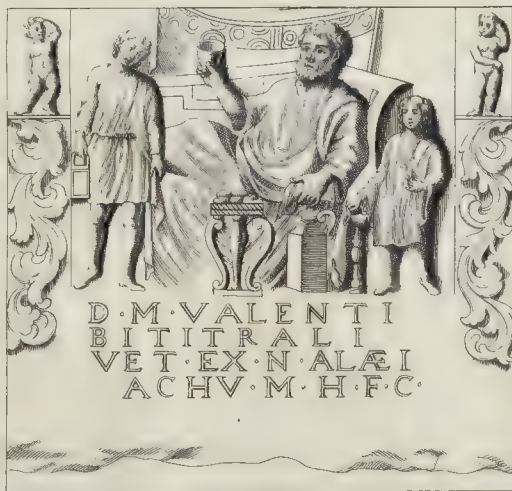 D · M · VALENTI
BITITRALI
VET · EX · N · ALÆI
ACHV · M · H · F · C ·